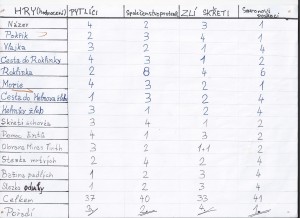 HRY(hodnocení) PYTLÍCI Společenstvo prstenu ZLÍ SKŘETI
Název 4 2 3 1
Pokřik 2 3 4 1
Vlajka 3 2 1 4
Cesta do Roklinky 4 3 1 2
Roklinka 2 8 4 6
Morie 4 3 2 1
Cesta do Helmova žlebu 1 3 2 4
Helmův žleb 3 1 4 2
3 4 1 2
4 3 1 2
Obrana Minas Tirith 3 2 1
Stezka mrtvých 2 4 2
Bažina padlých 1 2 3 4
1 2 3 4
Celkem 37 40 33 41
Pořadí